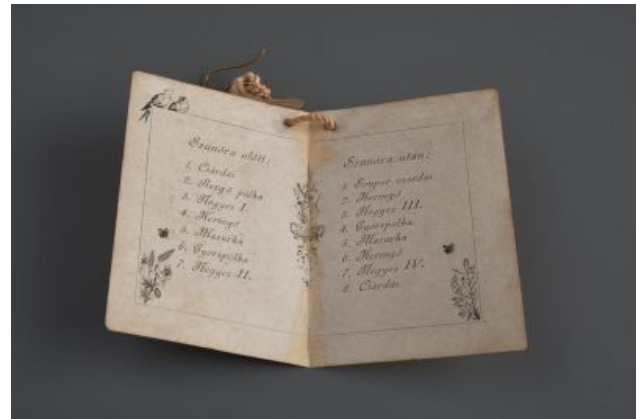 Szünóra előtt:
1. Csárdás
2. Rezgő polka
3. Négyes I.
4. Keringő
5. Mazurka
6. Gyorspolka
7. Négyes II.
Szünóra után:
1. Souper csárdás
2. Keringő
3. Négyes III.
4. Gyorspolka
5. Mazurka
6. Keringő
7. Négyes IV.
8. Csárdás